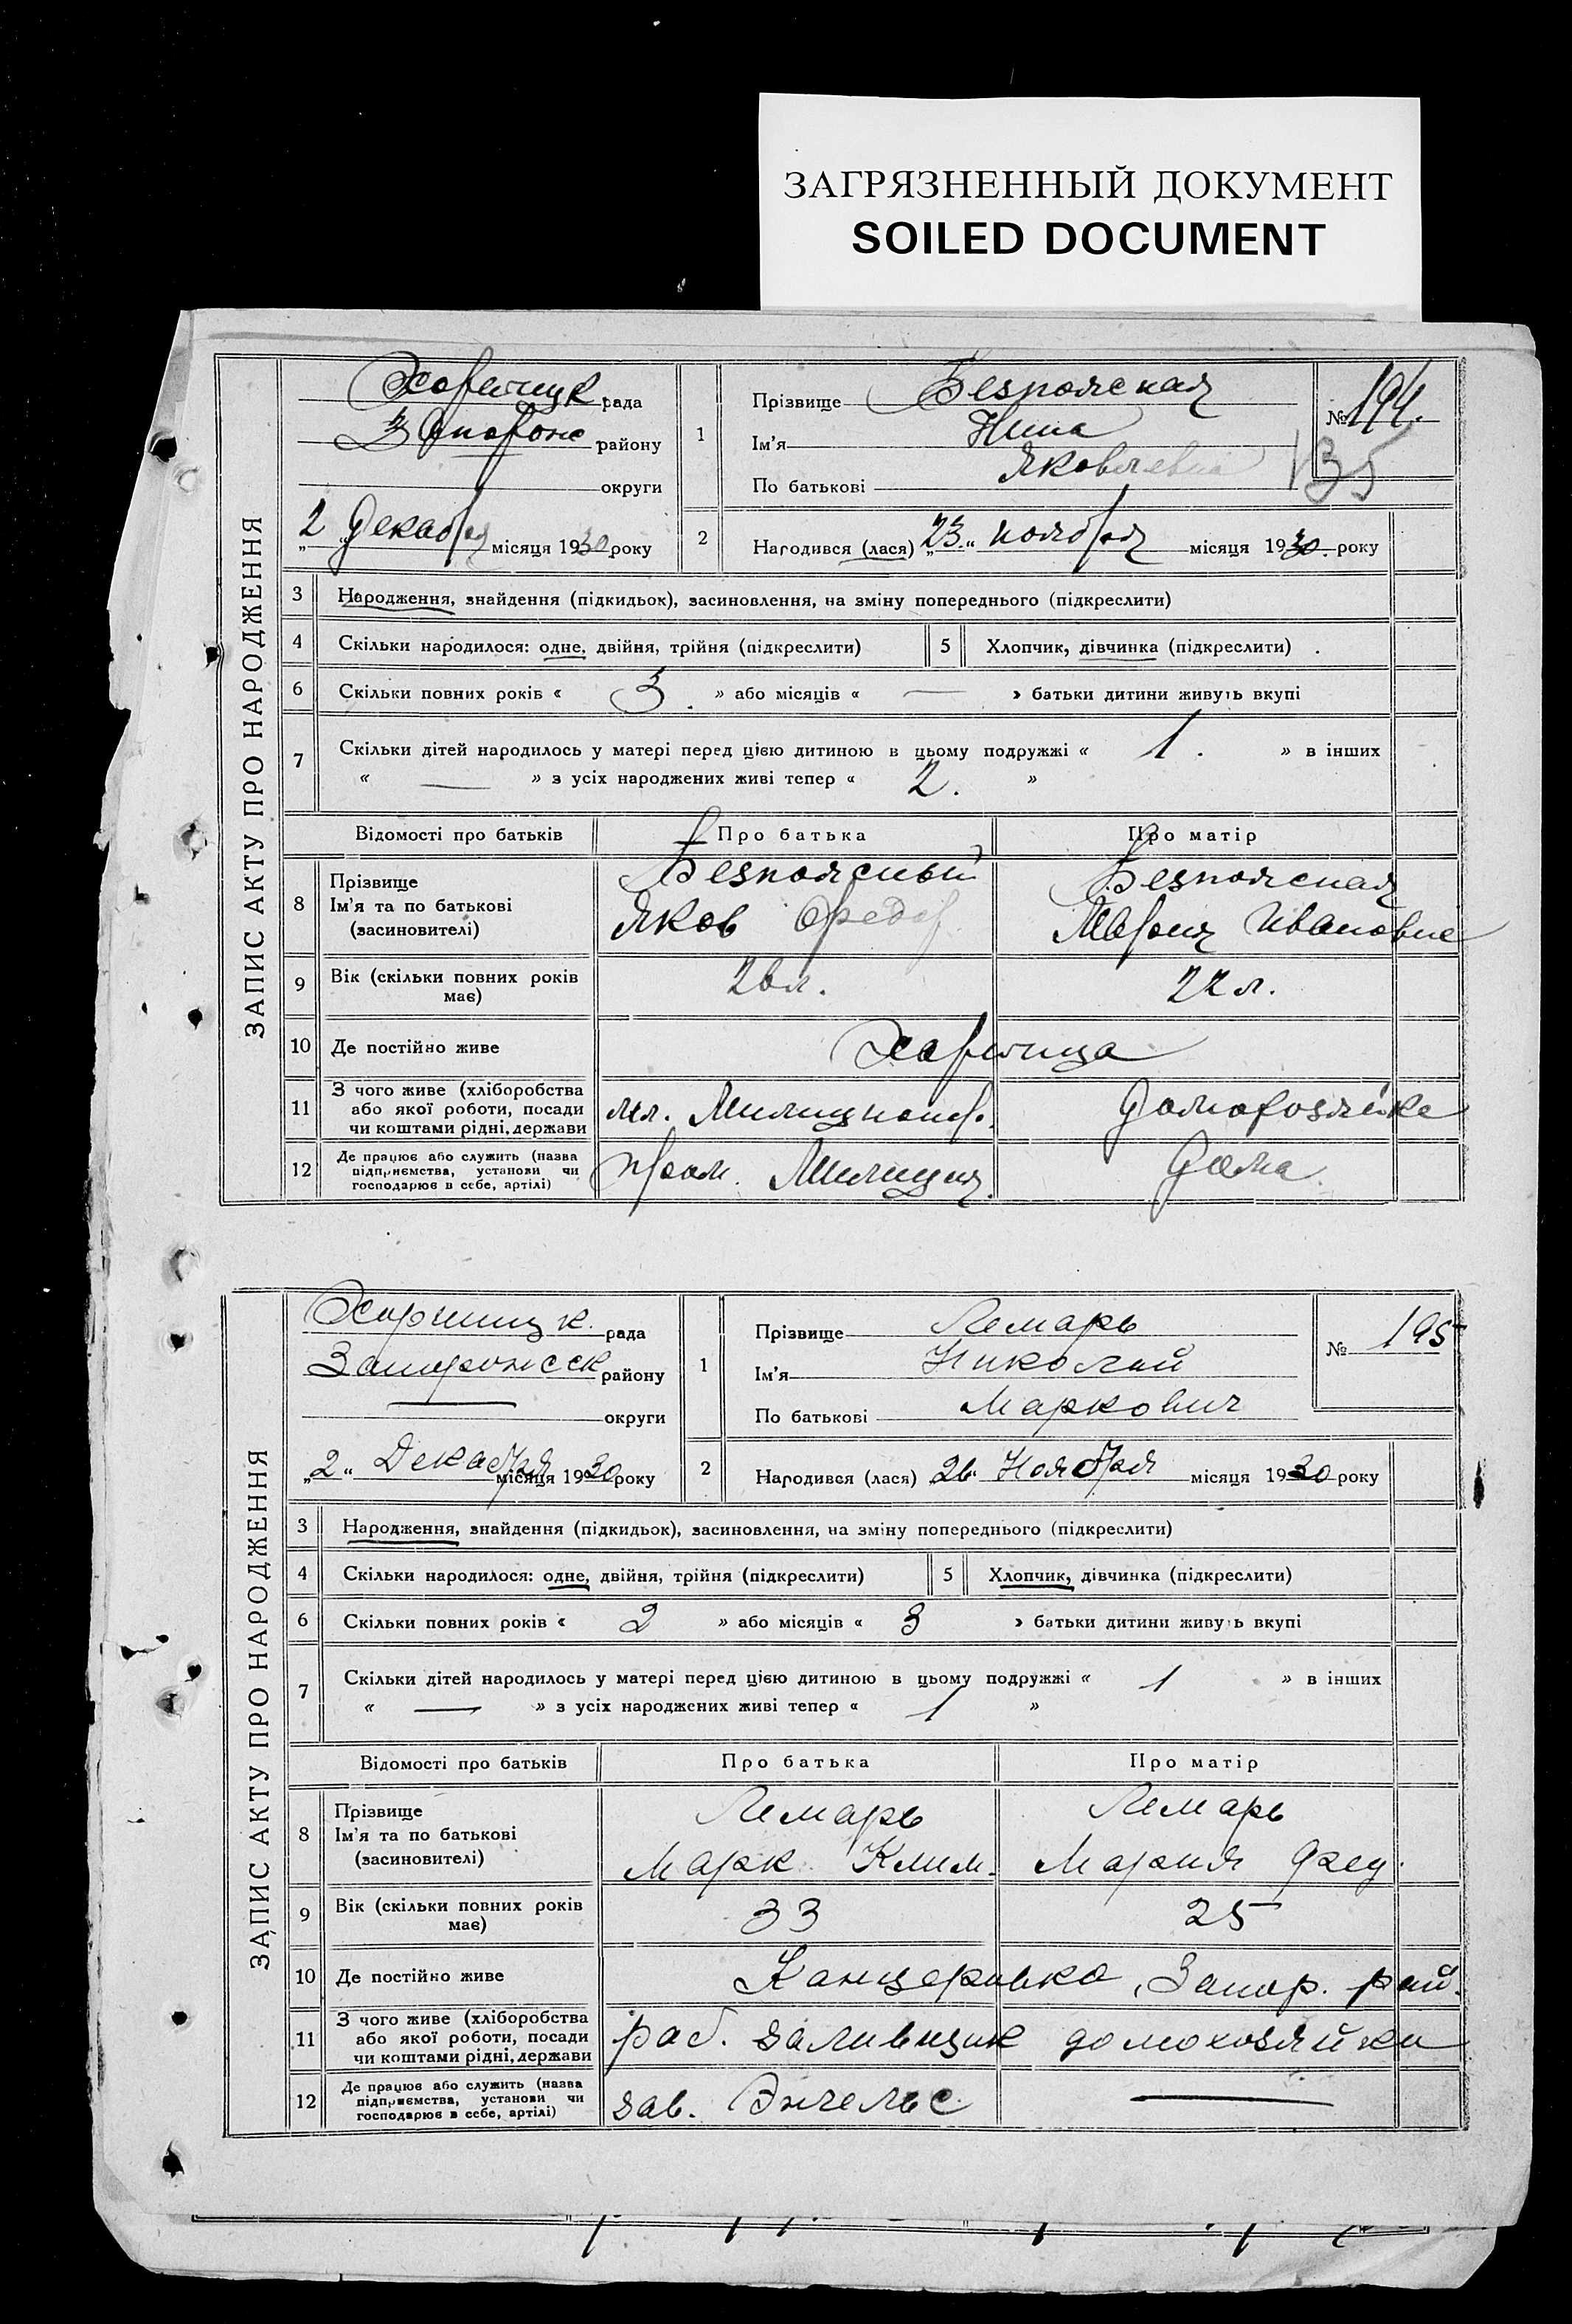 ЗАГРЯЗНЕННЫЙ ДОКУМЕНТ
SOILED DOCUMENT
ЗАПИС АКТУ ПРО НАРОДЖЕННЯ
Хортицк. рада
Запорож району
округи
„2 Декабря місяця 1930 року
1
Прізвище Безпоясная
Ім'я Нина
По батькові Яковлевна
№ 194.
135
2
Народився (лася) „23“ ноября місяця 1930. року
3 Народження, знайдення (підкидьок), засиновлення, на зміну попереднього (підкреслити)
4 Скільки народилося: одне, двійня, трійня (підкреслити) 5 Хлопчик, дівчинка (підкреслити)
6 Скільки повних років « 3. » або місяців « — » батьки дитини живуть вкупі
7 Скільки дітей народилось у матері перед цією дитиною в цьому подружжі « 1. » в інших
« — » з усіх народжених живі тепер « 2. »
Відомості про батьків Про батька Про матір
8 Прізвище Безпоясный Безпоясная
Ім'я та по батькові Яков Федор. Мария Ивановна
(засновителі)
9 Вік (скільки повних років має) 26 л. 22 л.
10 Де постійно живе Хортица
11 З чого живе (хліборобства або якої роботи, посади чи коштами рідні, держави мл. Милиционер. Домохозяйка
12 Де працює або служить (назва підприємства, установи чи господарює в себе, артілі) Пром. Милиция. Дома.
ЗАПИС АКТУ ПРО НАРОДЖЕННЯ
Хортицк. рада
Запорожск району
округи
„2“ Декабря місяця 1930 року
1
Прізвище Лемарь
Ім'я Николай
По батькові Маркович
№ 195
2
Народився (лася) 26“ Ноября місяця 1930 року
3 Народження, знайдення (підкидьок), засиновлення, на зміну попереднього (підкреслити)
4 Скільки народилося: одне, двійня, трійня (підкреслити) 5 Хлопчик, дівчинка (підкреслити)
6 Скільки повних років « 2 » або місяців « 3 » батьки дитини живуть вкупі
7 Скільки дітей народилось у матері перед цією дитиною в цьому подружжі « 1 » в інших
« — » з усіх народжених живі тепер « 1 »
Відомості про батьків Про батька Про матір
8 Прізвище Лемарь Лемарь
Ім'я та по батькові Марк Клим. Мария Фед.
(засиновителі)
9 Вік (скільки повних років має) 33 25
10 Де постійно живе Канцеровка, Запор. рай.
11 З чого живе (хліборобства або якої роботи, посади чи коштами рідні, держави раб. заливщик домохозяйка
12 Де працює або служить (назва підприємства, установи чи господарює в себе, артілі) зав. Энгельс —